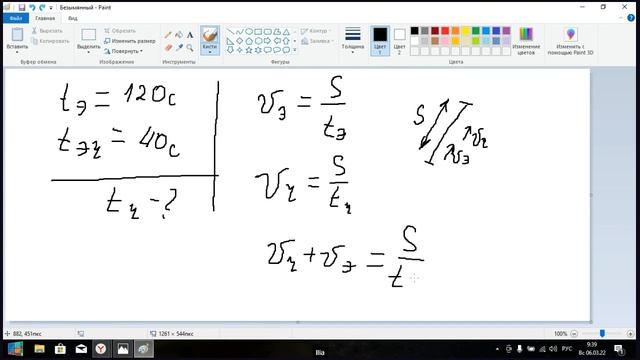 Безымянный - Paint
Вставить
Вырезать
Копировать
Буфер обмена
Выделить
Обрезать
Изменить размер
Повернуть
Изображение
Инструменты
Кисти
Фигуры
Контур
Заливка
Толщина
Цвет 1
Цвет 2
Цвета
Изменение цветов
Изменить с помощью Paint 3D
tэ = 120с
tэч = 40с
tч - ?
vэ = S/tэ
vч = S/tч
vч + vэ = S/t
S
vч
vэ
882, 451пкс
1261 × 544пкс
100%
Ilia
РУС
9:39
Вс 06.03.22